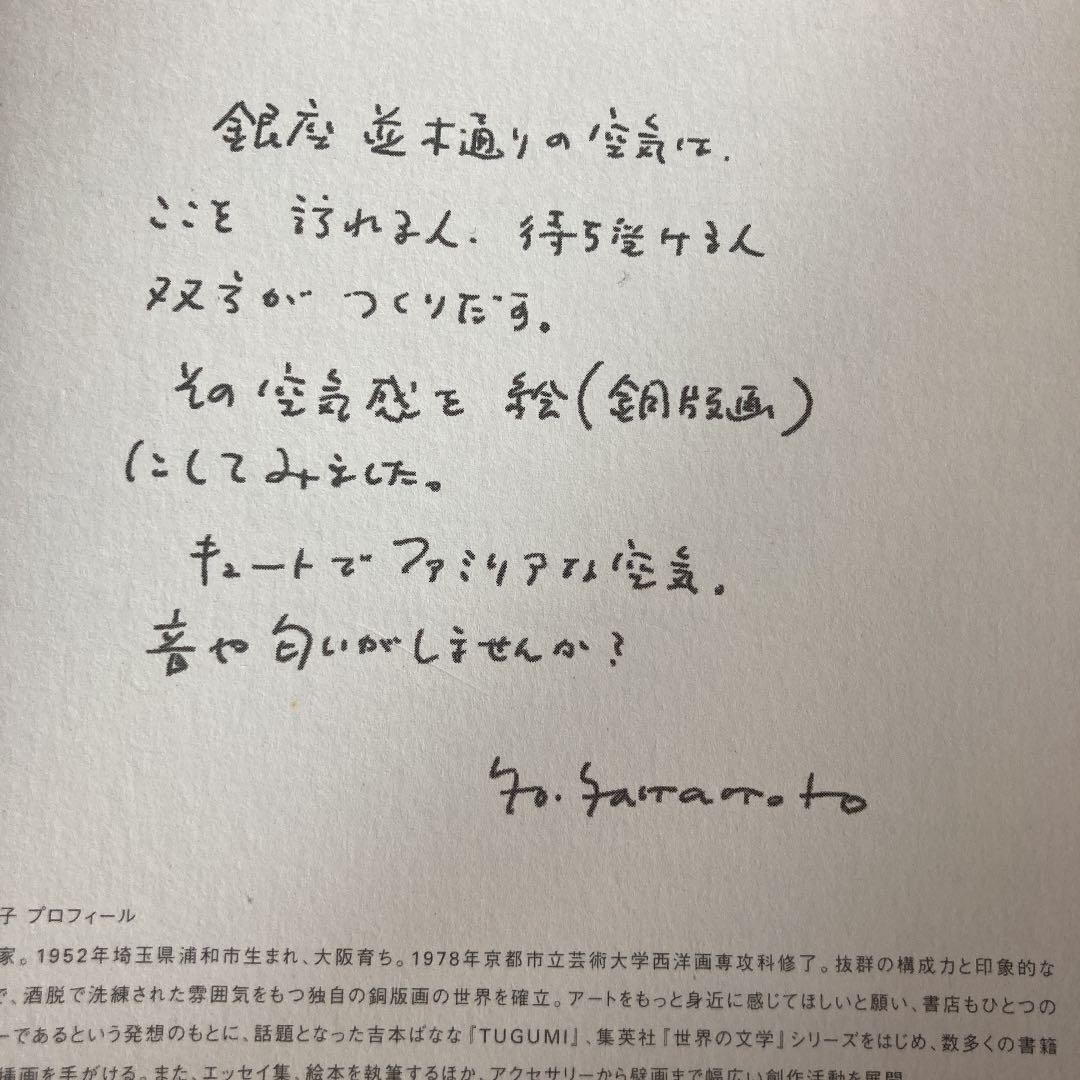 銀座 並木通りの空気は、
ここを 訪れる人、待ち受ける人
双方が つくりだす。
その空気感を 絵(銅版画)
にしてみました。
キュートでファミリアな空気。
音や匂いがしませんか?
Yo. Yamamoto
子 プロフィール
家。1952年埼玉県浦和市生まれ、大阪育ち。1978年京都市立芸術大学西洋画専攻科修了。抜群の構成力と印象的な
で、洒脱で洗練された雰囲気をもつ独自の銅版画の世界を確立。アートをもっと身近に感じてほしいと願い、書店もひとつの
ーであるという発想のもとに、話題となった吉本ばなな『TUGUMI』、集英社『世界の文学』シリーズをはじめ、数多くの書籍
挿画を手がける。また、エッセイ集、絵本を執筆するほか、アクセサリーから壁画まで幅広い創作活動を展開